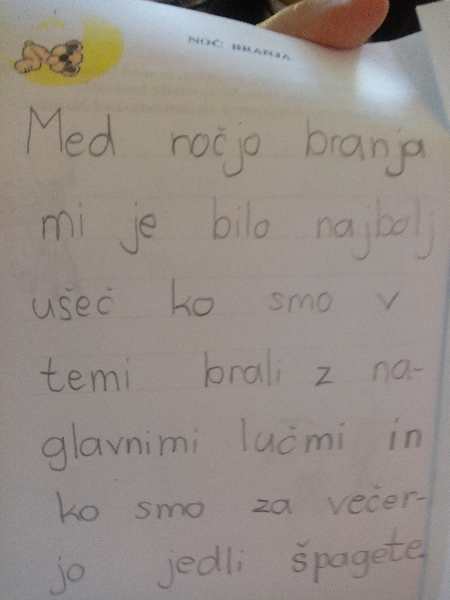 NOČ BRANJA
Med nočjo branja
mi je bilo najbolj
ušeč ko smo v
temi brali z na-
glavnimi lučmi in
ko smo za večer-
jo jedli špagete